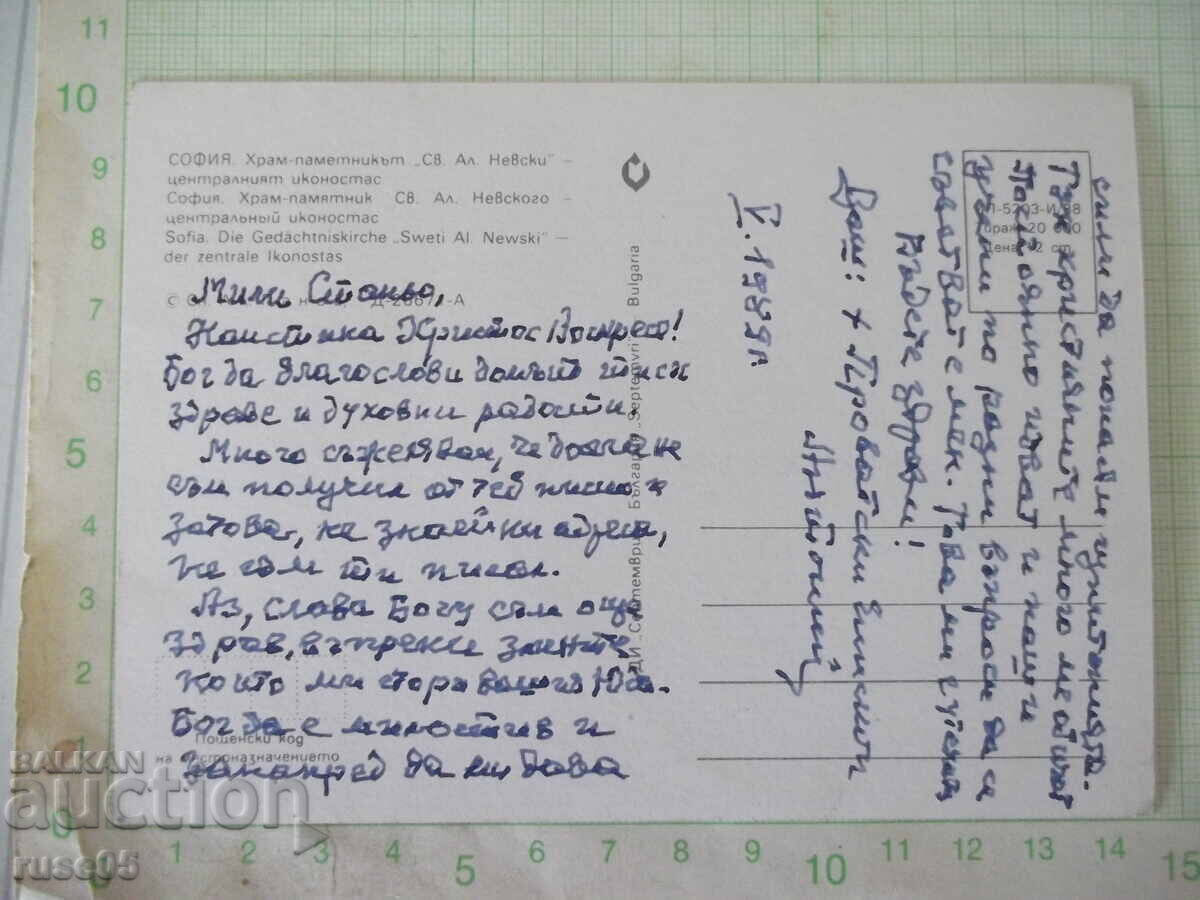 СОФИЯ. Храм-паметникът „Св. Ал. Невски" –
централният иконостас
София. Храм-памятник Св. Ал. Невского –
центральный иконостас
Sofia. Die Gedächtniskirche "Sweti Al. Newski" –
der zentrale Ikonostas
Мили Станьо,
Наистина Христос Воскресе!
Бог да благослови с
здраве и духовни радости.
Много съжелявам, че не
съм получил от теб писмо и
затова, не знаейки адреса,
не съм ти писал.
Аз, слава Богу съм още
здрав, въпреки
които ми
Бог да е милостив и
занапред да ми дава
Пощенски код
на местоназначението
ДИ „Септември" България "Septemvri" Bulgaria
сили да понасям
Тук християните много ме обичат
Постоянно идват и наши и
чужди по разни въпроси да се
съветват с мен. Това ми е утехата
Бъдете здрави!
Ваш: + Проватски Епископ
Антоний
V. 1989г.
20 000
BALKAN
auction
ruse05
11
10
9
8
7
6
5
4
3
2
1
0
1
2
3
4
5
6
7
8
9
10
11
12
13
14
15